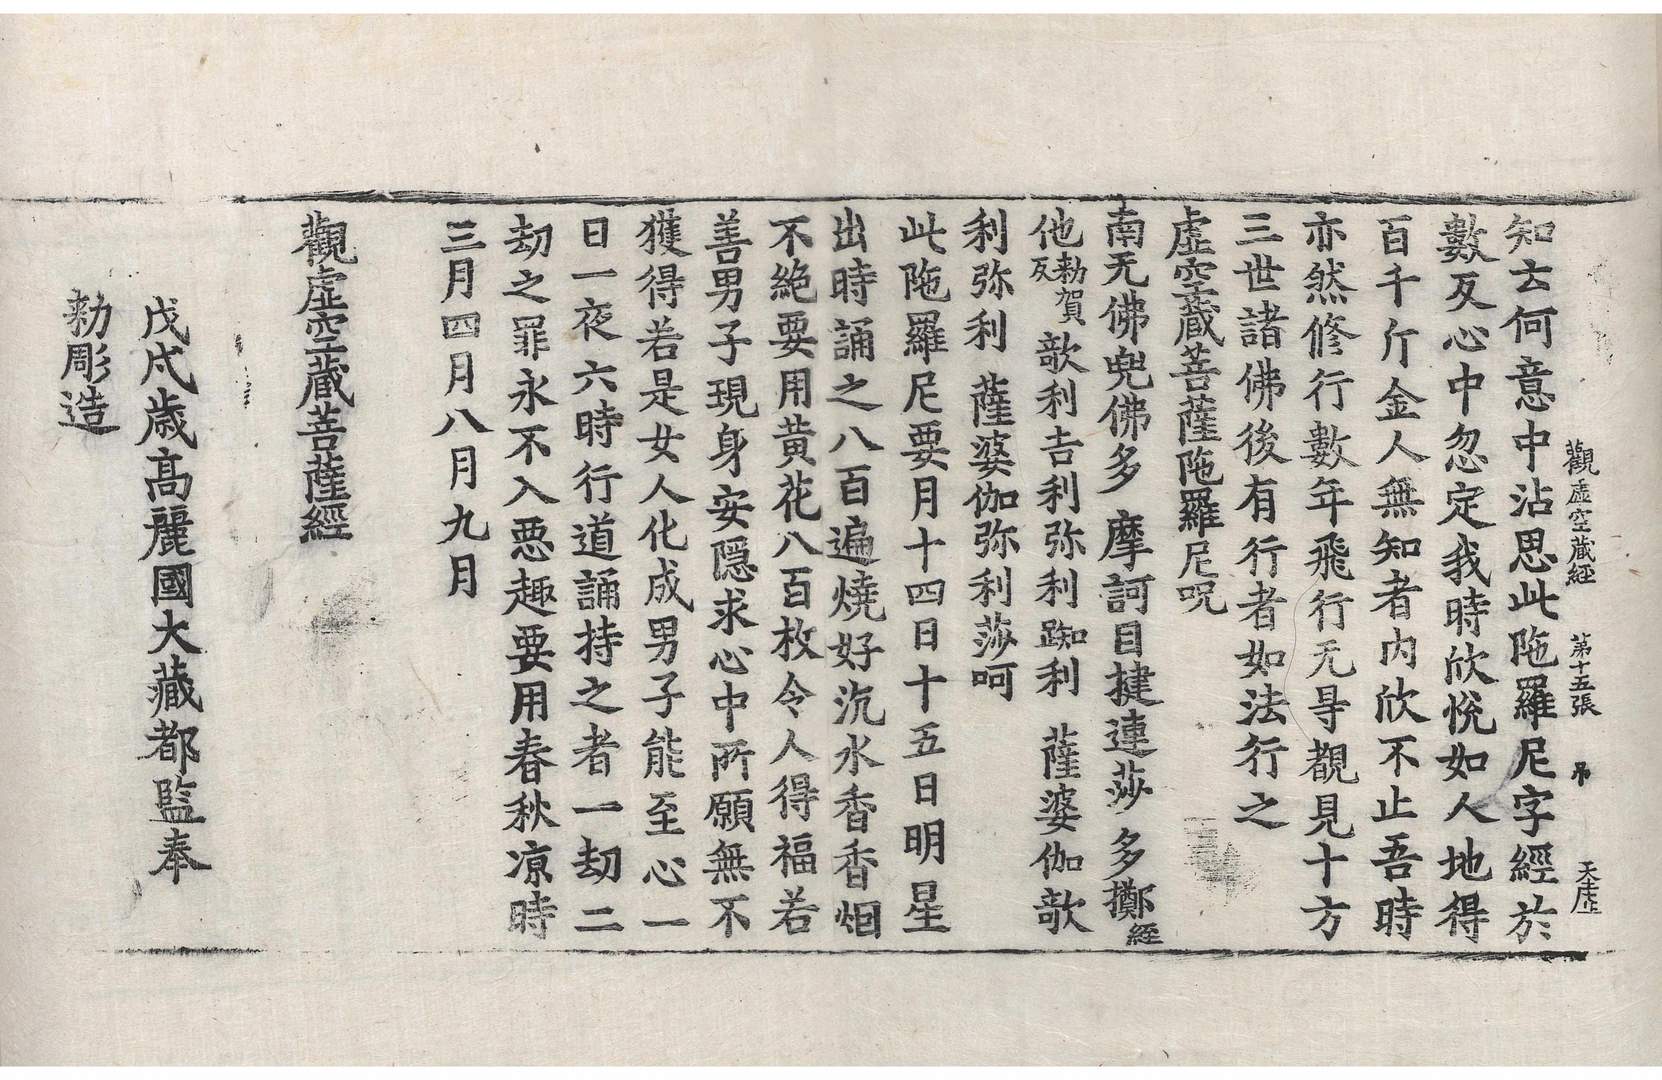 觀虛空藏經 第十五張 弔 天虛
知去何意中沾思此陁羅尼字經於
數反心中忽定我時欣悅如人地得
百千斤金人無知者內欣不止吾時
亦然修行數年飛行无㝵觀見十方
三世諸佛後有行者如法行之
虛空藏菩薩陁羅尼呪
南无佛兜佛多 摩訶目揵連莎 多擲經
他勑賀反 歆利吉利弥利踟利 薩婆伽歆
利弥利 薩婆伽弥利莎呵
此陁羅尼要月十四日十五日明星
出時誦之八百遍燒好沉水香香烟
不絶要用黃花八百枚令人得福若
善男子現身安隱求心中所願無不
獲得若是女人化成男子能至心一
日一夜六時行道誦持之者一劫二
劫之罪永不入惡趣要用春秋凉時
三月四月八月九月
觀虛空藏菩薩經
戊戌歲高麗國大藏都監奉
勑彫造